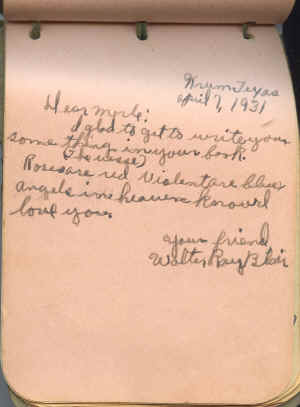 Krum Texas
April 7, 1931
Dear Merle:
I glad to get to write you
some thing in your book.
Roses are red Violent are blue
angels in heaven know I
love you.
Your friend
Walter Ray Blair